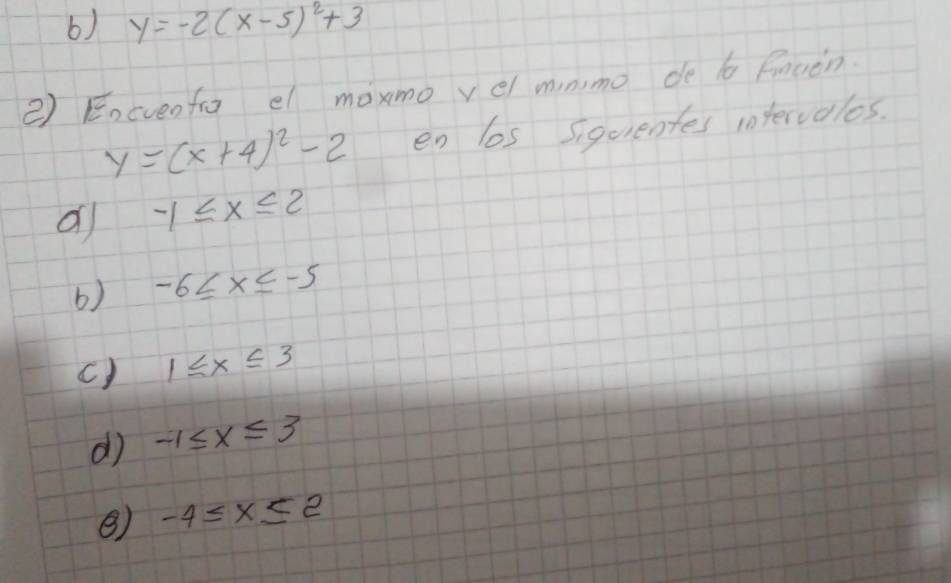 b) y=-2(x-5)²+3
2) Encuentra el máximo y el minimo de la función.
y=(x+4)²-2 en los siguientes intervalos.
a) -1≤x≤2
b) -6≤x≤-5
c) 1≤x≤3
d) -1≤x≤3
e) -4≤x≤2